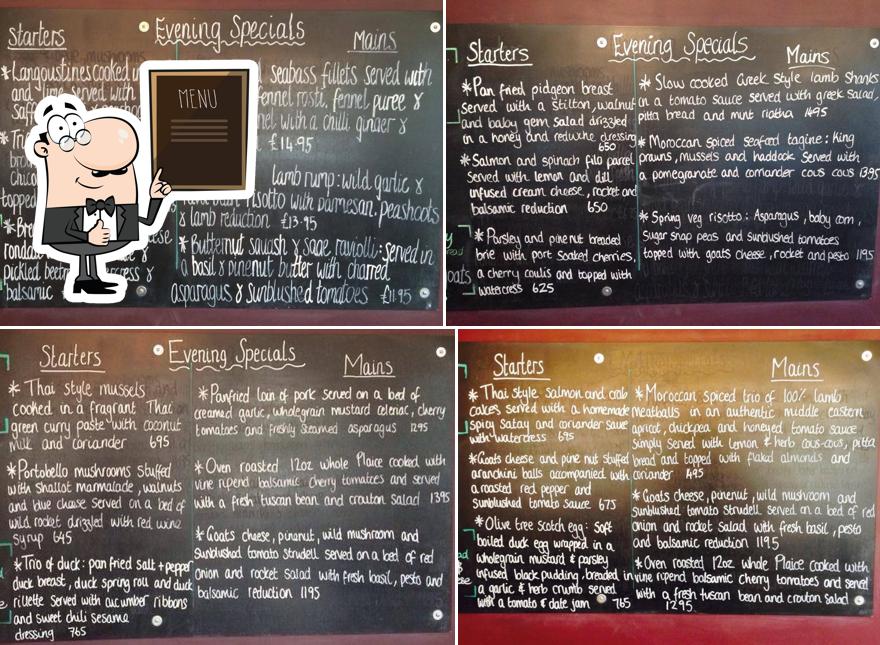 Starters
Evening Specials
Mains
*Langoustines cooked
and lime served with
topped
pickled
balsamic
MENU
seabass fillets served with
fennel rosti, fennel puree &
with a chilli ginger &
£14.95
lamb rump: wild garlic &
risotto with parmesan, peashoots
& lamb reduction £13.95
*Butternut squash & sage raviolli: served in
a basil & pinenut butter with charred
asparagus & sunblushed tomatoes £11.95
Starters
Evening Specials
Mains
*Pan fried pidgeon breast
served with a stilton, walnut
and baby gem salad drizzled
in a honey and redwine dressing
650
*Salmon and spinach filo parcel
served with lemon and dill
infused cream cheese, rocket and
balsamic reduction 650
*Parsley and pinenut breaded
brie with port soaked cherries,
a cherry coulis and topped with
watercress 625
*Slow cooked Greek style lamb shanks
in a tomato sauce served with greek salad,
pitta bread and mint riatha 1495
*Moroccan spiced seafood tagine: King
prawns, mussels and haddock served with
a pomegranate and corriander cous cous 1395
*Spring veg risotto: Asparagus, baby corn,
Sugar snap peas and Sunblushed tomatoes
topped with goats cheese, rocket and pesto 1195
oats
Starters
Evening Specials
Mains
*Thai style mussels
cooked in a fragrant Thai
green curry paste with coconut
milk and coriander 695
*Portobello mushrooms stuffed
with shallot marmalade, walnuts
and blue cheese served on a bed of
wild rocket drizzled with red wine
syrup 645
*Trio of duck: pan fried salt + pepper
duck breast, duck spring roll and duck
rillette served with cucumber ribbons
and sweet chili sesame
dressing 765
*Panfried loin of pork served on a bed of
creamed garlic, wholegrain mustard celeriac, cherry
tomatoes and freshly steamed asparagus 1295
*Oven roasted 12oz whole Plaice cooked with
vine ripend balsamic cherry tomatoes and served
with a fresh tuscan bean and crouton salad 1395
*Goats cheese, pinenut, wild mushroom and
sunblushed tomato strudell served on a bed of red
onion and rocket salad with fresh basil, pesto and
balsamic reduction 1195
Starters
Mains
*Thai style salmon and crab
cakes served with a homemade
spicy satay and coriander sauce
with watercress 695
*Goats cheese and pine nut stuffed
aranchini balls accompanied with
a roasted red pepper and
sunblushed tomato sauce 675
*Olive tree scotch egg: Soft
boiled duck egg wrapped in a
wholegrain mustard & parsley
infused black pudding, breaded in
a garlic & herb crumb served
with a tomato & date jam 765
*Moroccan spiced trio of 100% lamb
meatballs in an authentic middle eastern
apricot, chickpea and honeyed tomato sauce
simply served with lemon & herb cous-cous, pitta
bread and topped with flaked almonds and
coriander 1495
*Goats cheese, pinenut, wild mushroom and
sunblushed tomato strudell served on a bed of red
onion and rocket salad with fresh basil, pesto
and balsamic reduction 1195
*Oven roasted 12oz whole Plaice cooked with
vine ripend balsamic cherry tomatoes and served
with a fresh tuscan bean and crouton salad
1295